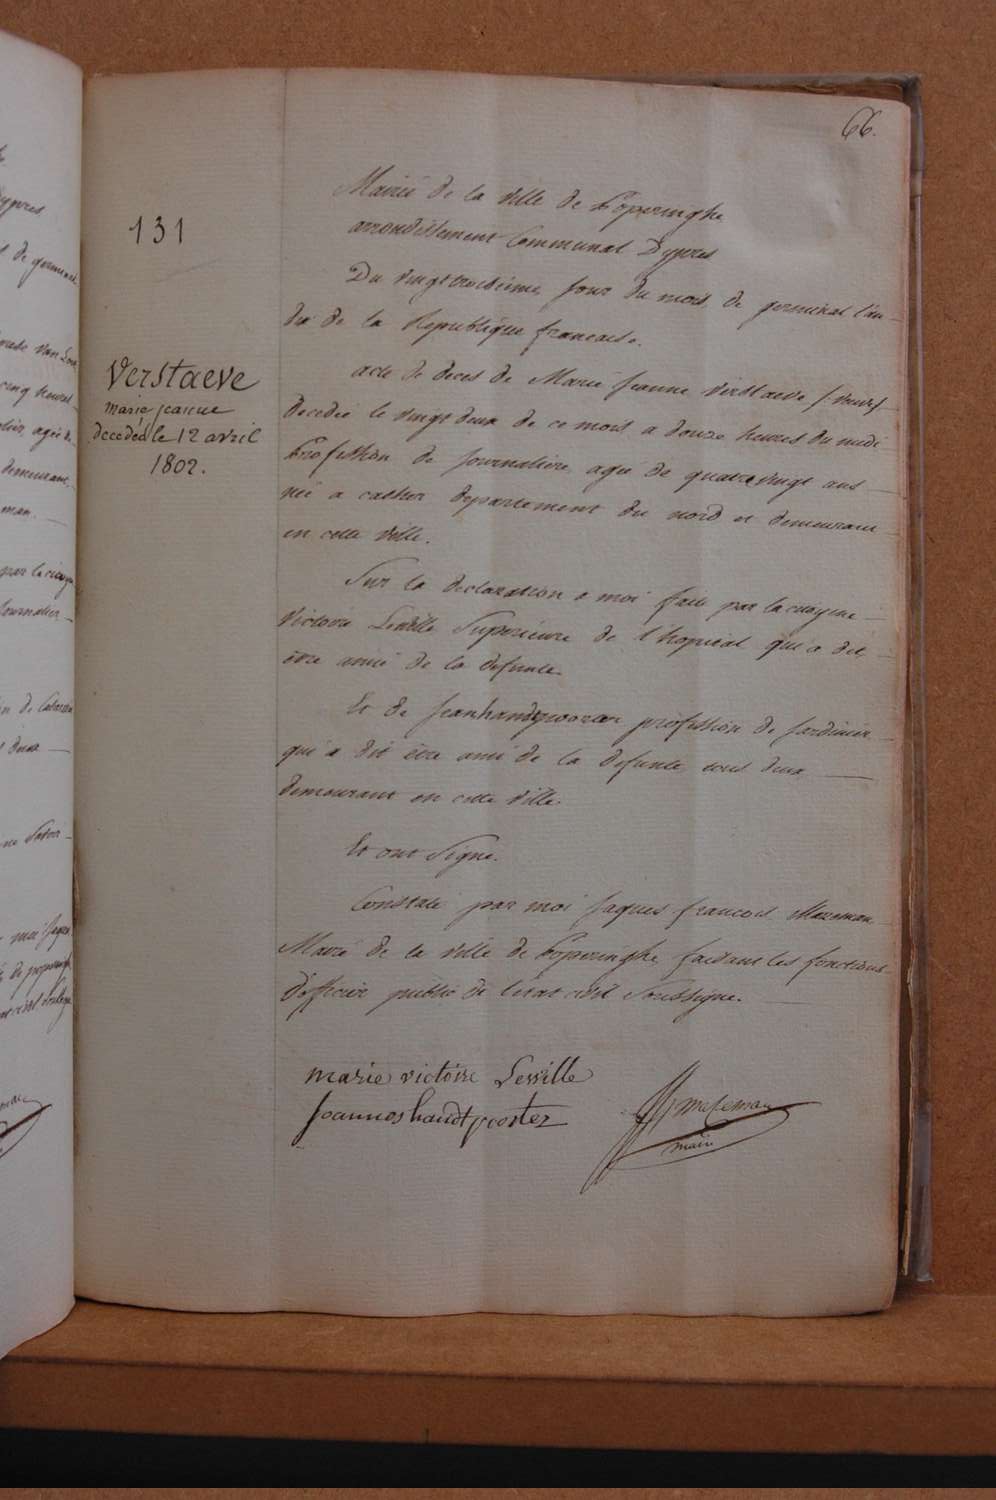 66.
131
Verstaeve
marie jeanne
decedeé le 12 avril
1802.
Mairié de la ville de Poperinghe
arrondissement Communal Dypres
Du vingttroisieme jour du mois de germinal l'an
dix de la Republique francaise.
acte de deces de Marie Jeanne Verstaeve
decedeé le vingt deux de ce mois a douze heures du midi
Profession de Journaliere, ageé de quatrevingt ans
neé a cassel departement du nord et demeurant
en cette ville.
Sur la declaration a moi faite par la citoyene
Victoire Leville Superieure de l'hopital qui a dit
être amié de la defunte
Et de Jean handtpooter profession de Jardinier
qui a dit être ami de la defunte tous deux
demeurant en cette ville.
Et ont Signe.
Constaté par moi Jaques francois Mazeman
Mairé de la ville de Poperinghe faisant les fonctions
d'officier public de l'etat civil Soussigne.
marie victoire Leville
Joannes handtpooter
Mazeman
maire